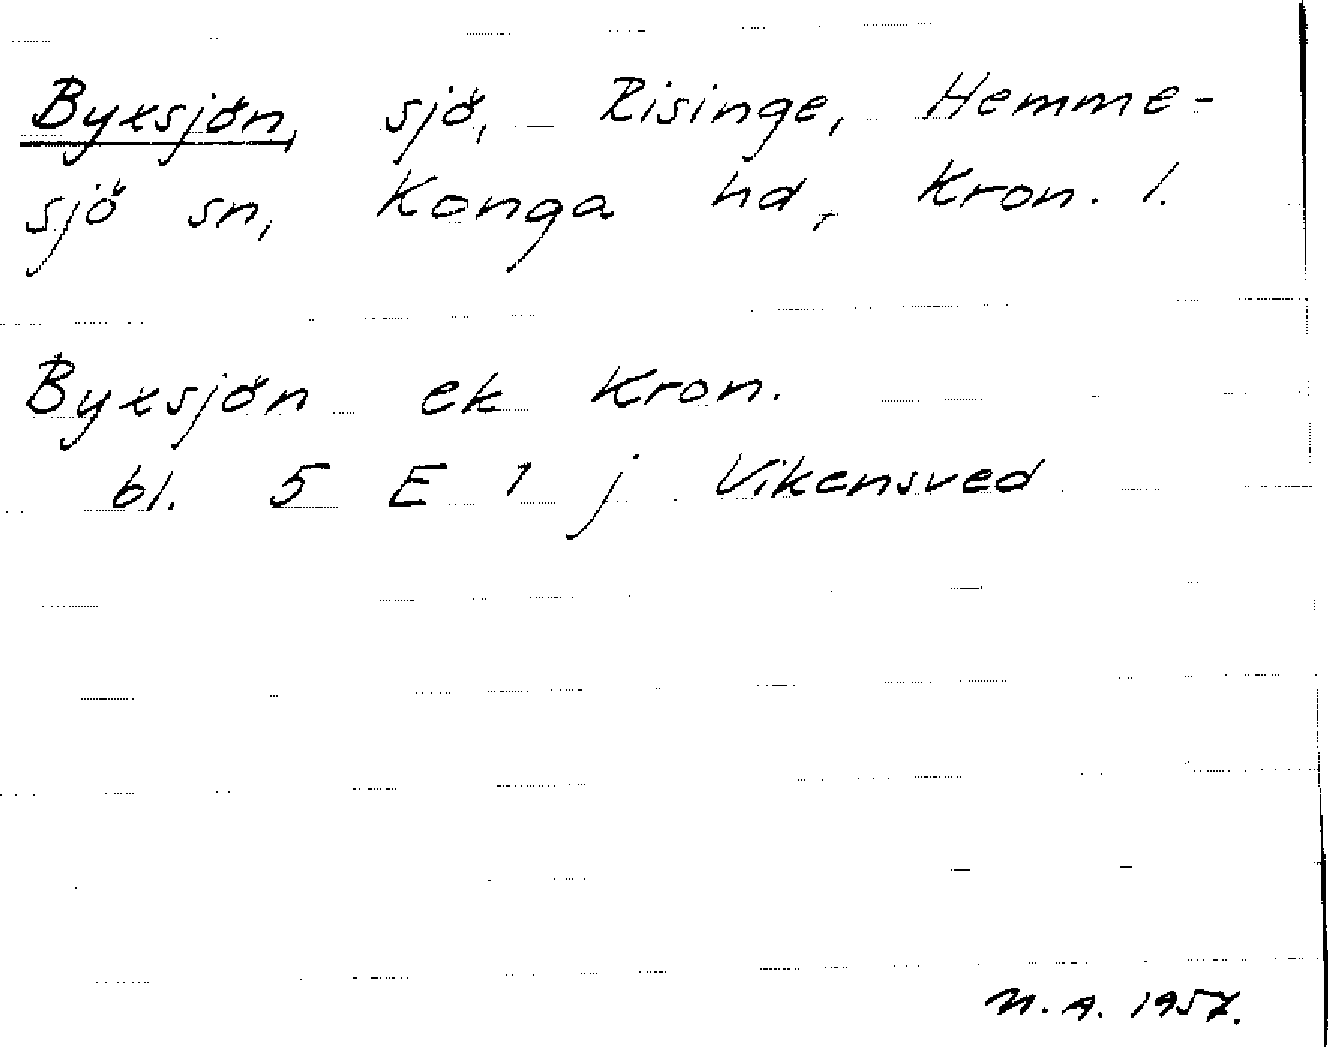 Byxsjön, sjö, Risinge, Hemme-
sjö sn, Konga hd, Kron. l.
Byxsjön ek Kron.
bl. 5 E 1 j Vikensved
N. A. 1957.